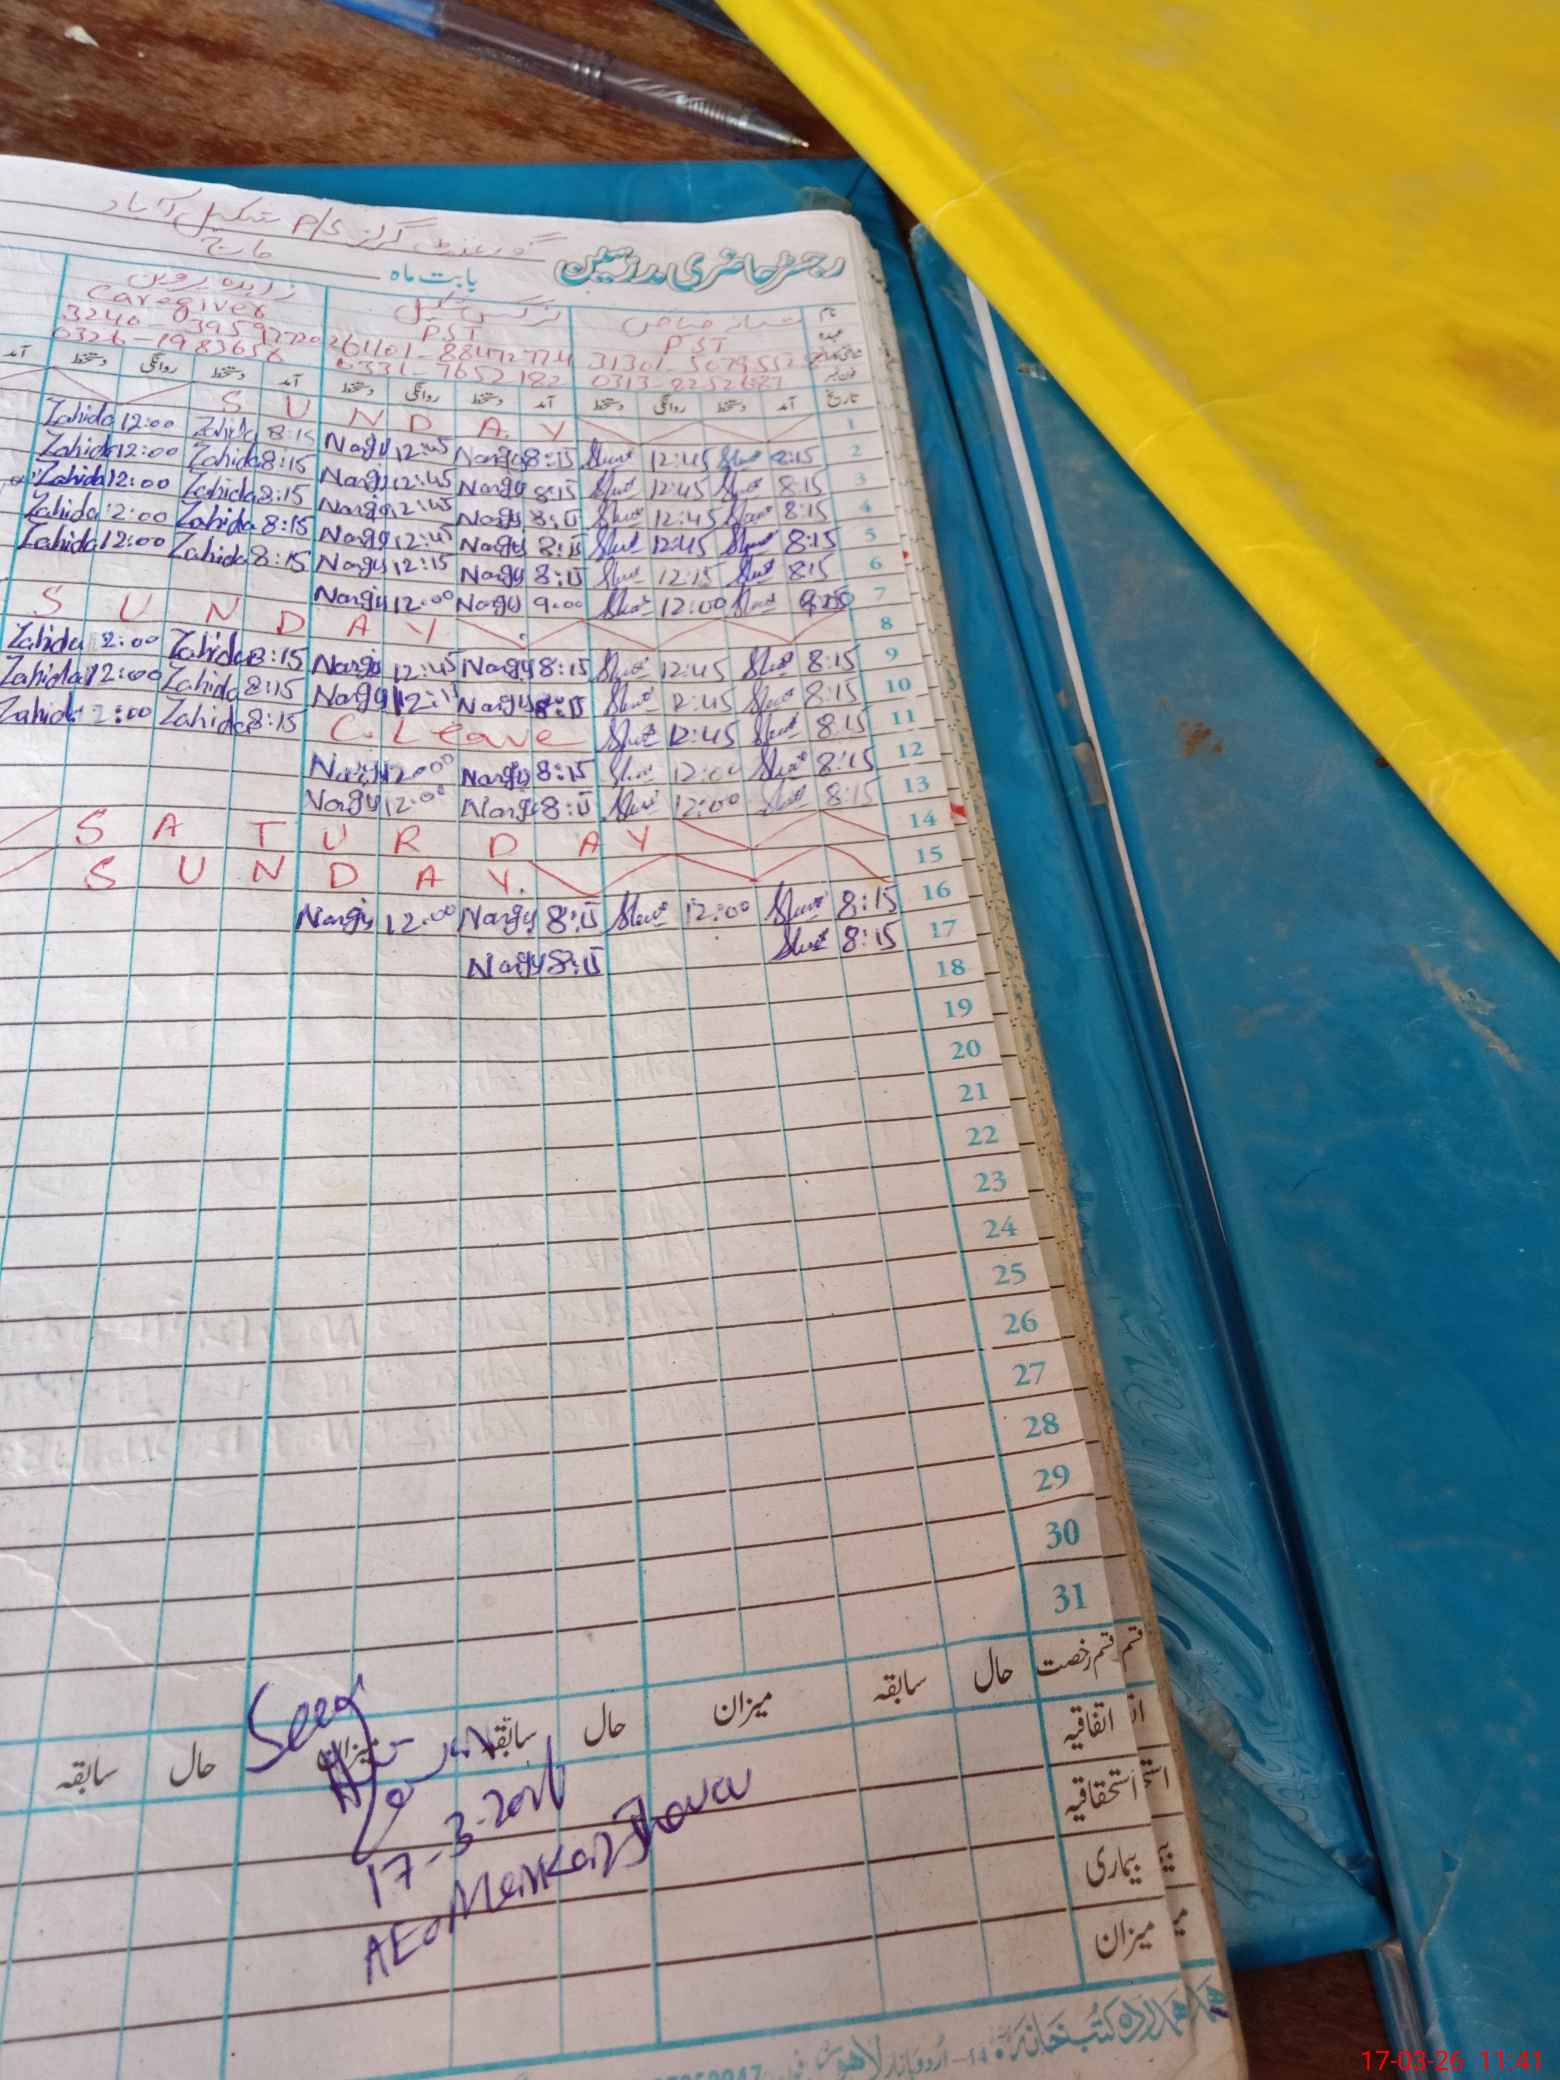 گورنمنٹ گرلز P/S شکیل آباد
رجسٹر حاضری مدرسین
بابت ماہ مارچ
نام
عہدہ
PST PST Caregiver
0331-7652182 0326-1983656
تاریخ آمد دستخط روانگی دستخط آمد دستخط روانگی دستخط آمد دستخط روانگی دستخط آمد
1 S U N D A Y
2 8:15 12:45 Nargis 8:15 Nargis 12:45 8:15 Zahida 12:00 Zahida
3 8:15 12:45 8:15 Nargis 12:45 Nargis 8:15 Zahida 12:00 Zahida
4 8:15 12:45 8:15 Nargis 12:45 Nargis 8:15 Zahida 12:00 Zahida
5 8:15 12:45 8:15 Nargis 12:45 Nargis 8:15 Zahida 2:00 Zahida
6 8:15 12:15 8:15 Nargis 12:15 Nargis 8:15 Zahida 12:00 Zahida
7 12:00 9:00 Nargis 12:00 Nargis
8 S U N D A Y
9 8:15 12:45 8:15 Nargis 12:45 Nargis 8:15 Zahida 2:00 Zahida
10 8:15 12:45 8:15 Nargis Nargis 8:15 Zahida 12:00 Zahida
11 8:15 12:45 C. Leave 8:15 Zahida 2:00 Zahida
12 8:15 12:00 8:15 Nargis 12:00 Nargis
13 8:15 12:00 8:15 Nargis 12:00 Nargis
14 S A T U R D A Y
15 S U N D A Y.
16 8:15 12:00 8:15 Nargis 12:00 Nargis
17 8:15 8:15 Nargis
18
19
20
21
22
23
24
25
26
27
28
29
30
31
قسم رخصت حال سابقہ میزان حال سابقہ میزان حال سابقہ
اتفاقیہ
استحقاقیہ
بیماری
میزان
Seen
17-3-2026
AEO Markaz
ہمدرد کتب خانہ
14- اُردو بازار لاہور
17-03-26 11:41